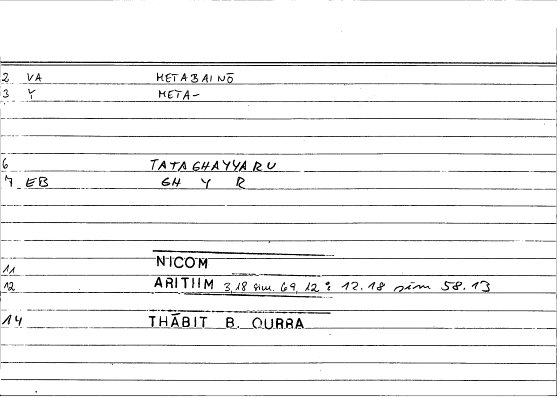 2 VA METABAINŌ
3 Y META-
6 TATAGHAYYARU
7 EB GH Y R
11 NICOM
12 ARITIIM 3,18 sim. 69, 12 : 12.18 sim 58.13
14 THĀBIT B. QURRA